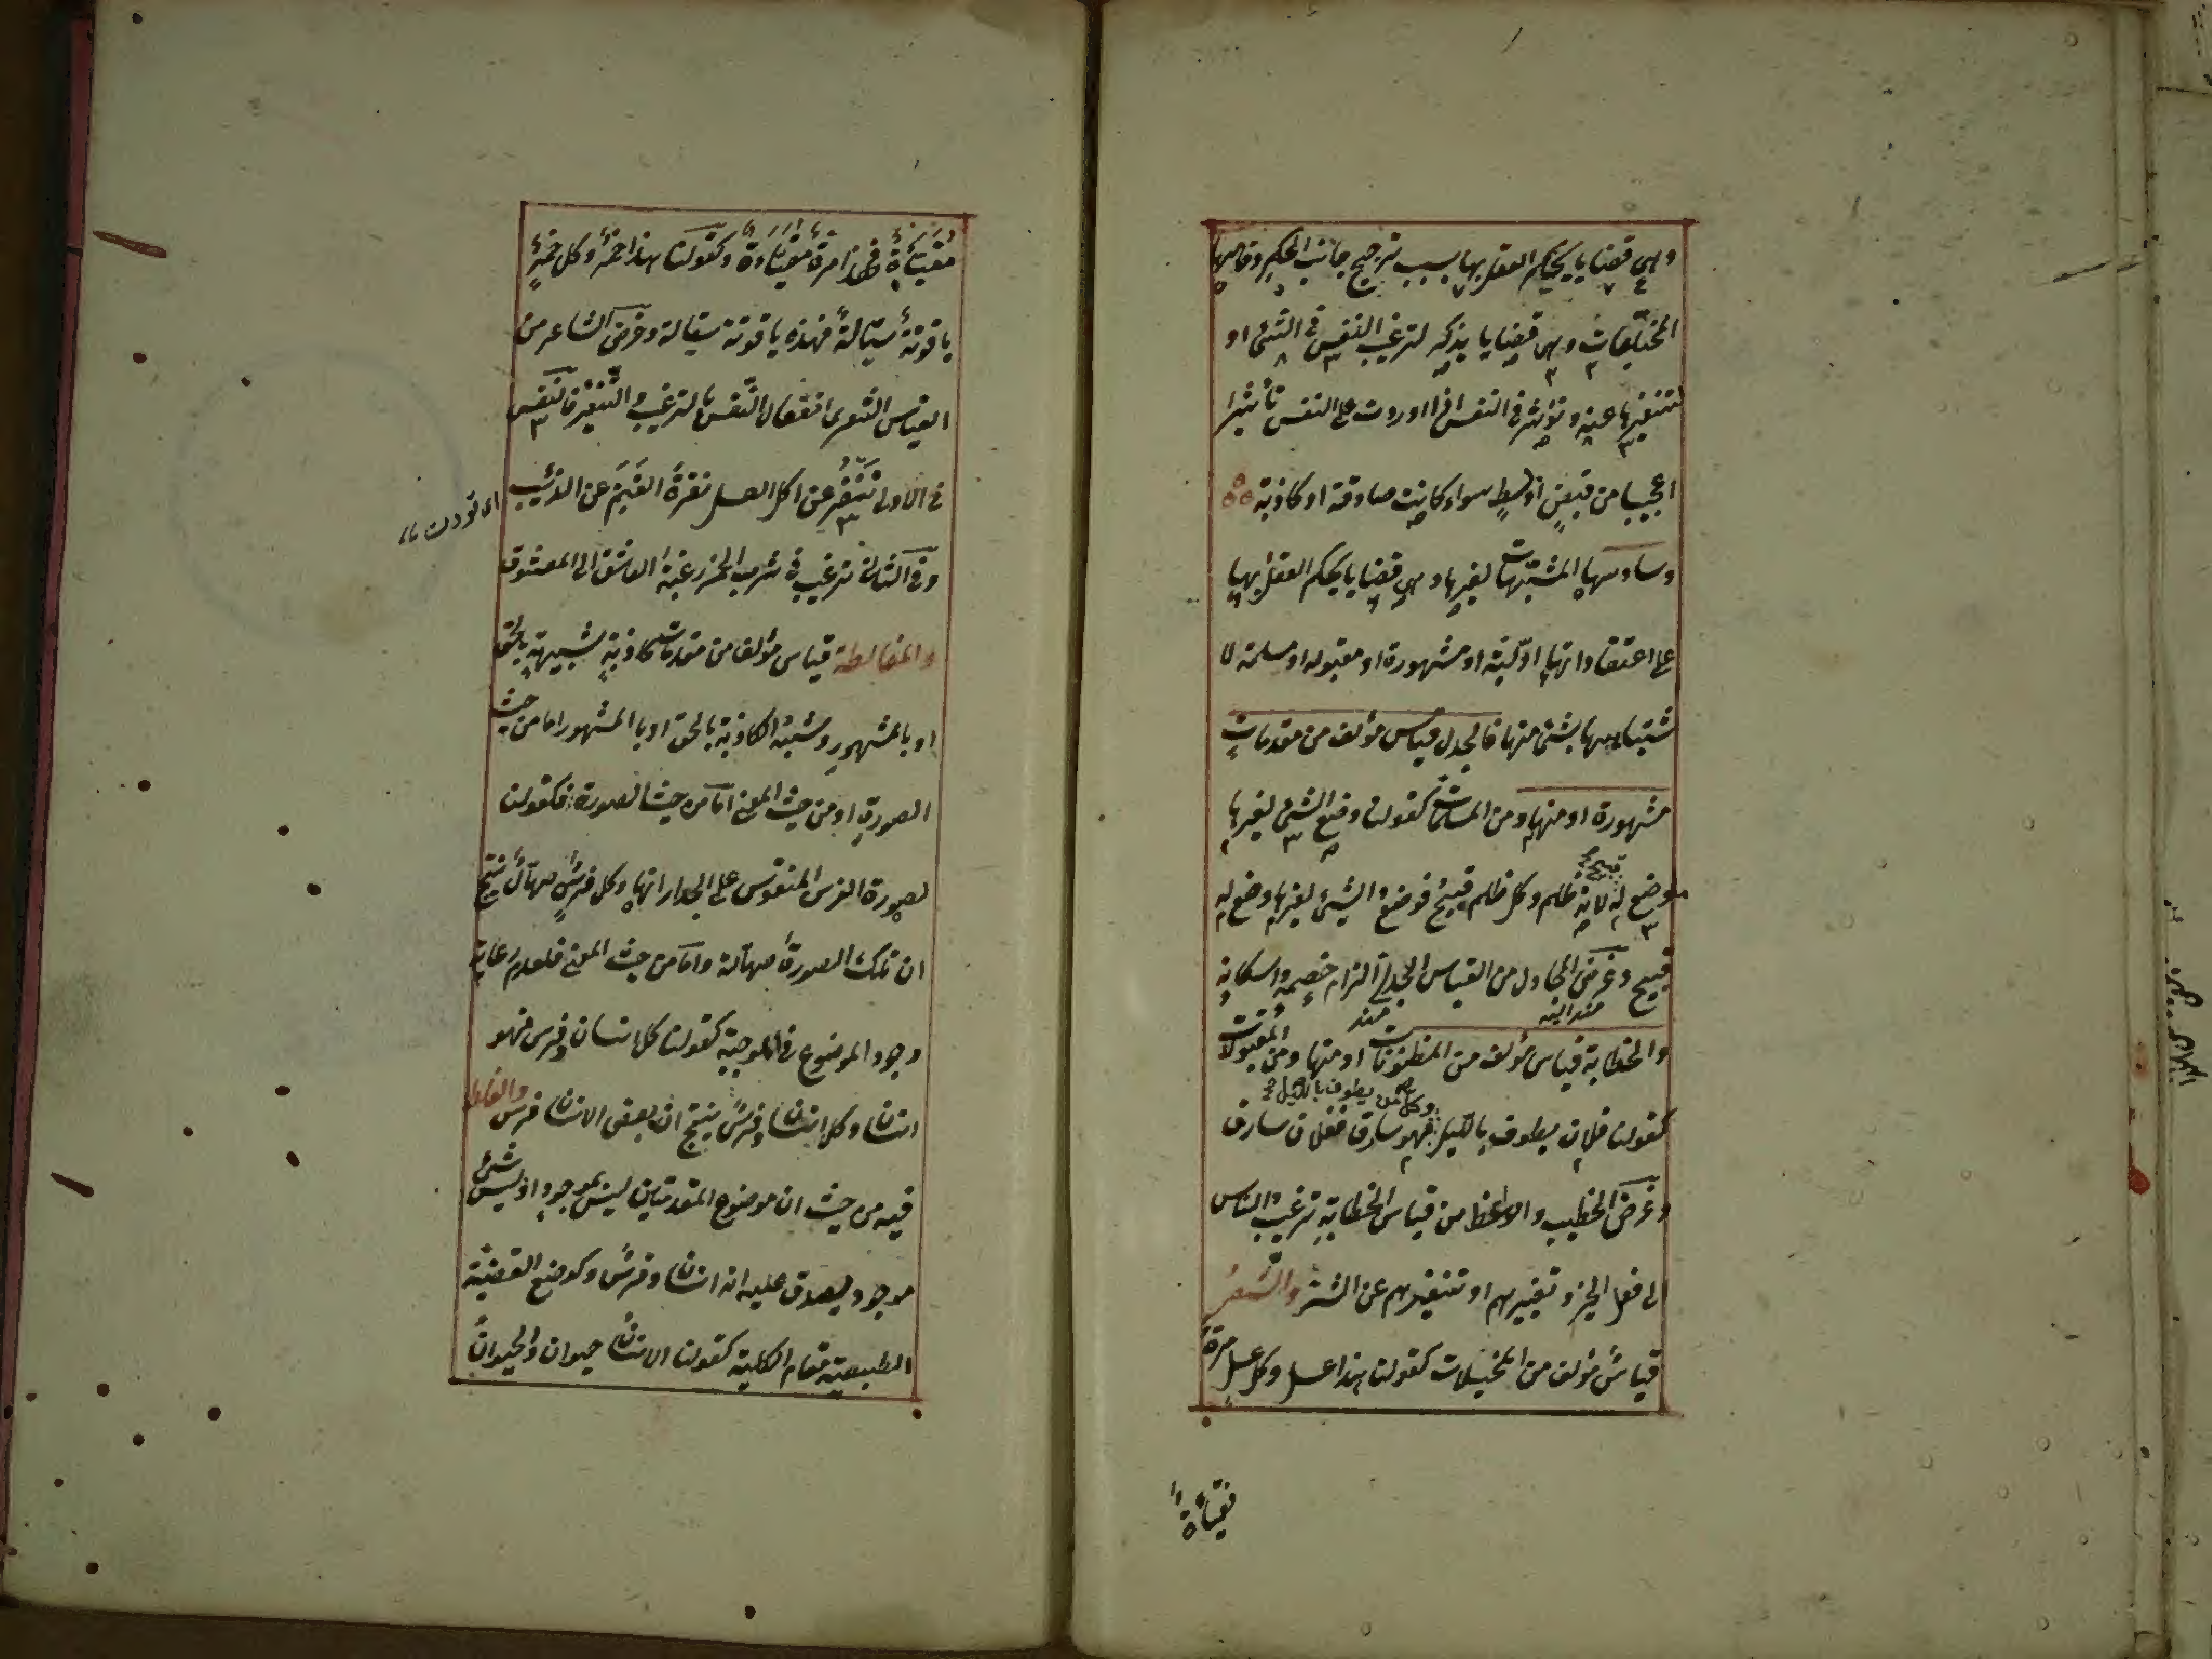 وهي قضايا يحكم العقل بها بسبب ترجيح جانب الحكم وخامسها
المخيلات وهي قضايا يذكر لترغيب النفس في الشئ او
لتنفيرها عنه وتؤثر في النفس اذا اوردت على النفس تأثيرا
عجيبا من قبض او بسط سواء كانت صادقة او كاذبة
وسادسها المشبّهات لغيرها وهي قضايا يحكم العقل بها
على اعتقاد انها اوّلية او مشهورة او مقبوله او مسلمة لا
شتباهها بشئ منها فالجدل قياس مؤلف من مقدمات
مشهورة او منها ومن المسلمات كقولنا وضع الشئ لغير ما
موضع له قبيح لانه ظلم وكل ظلم قبيح فوضع الشئ لغير ما وضع له
قبيح وغرض المجادل من القياس الجدلي الزام خصمه واسكاته
والخطابة قياس مؤلف من المظنونات او منها ومن المقبولات
كقولنا فلان يطوف بالليل وكل من يطوف بالليل فهو سارق ففلان سارق
وغرض الخطيب والواعظ من قياس الخطابة ترغيب الناس
الى فعل الخير وتنفيرهم عن الشر والشعر
قياس مؤلف من المخيلات كقولنا هذا عسل وكل عسل مرة
مقيّأة فهذا مرة مقيّأة وكقولنا هذا خمر وكل خمر
ياقوتة سيّالة فهذه ياقوتة سيالة وغرض الشاعر من
القياس الشعرى انفعال النفس بالترغيب والتنفير فالنفس
في الاولى تتنفّر عن اكل العسل نفرة الغنم عن الذئب
وفي الثانى ترغيب في شرب الخمر رغبة العاشق الى المعشوق
والمغالطة قياس مؤلف من مقدمات كاذبة شبيهة بالحق
او بالمشهور وشبه الكاذبة بالحق او با المشهور اما من حيث
الصورة او من حيث المعنى اما من حيث الصورة فكقولنا
لصورة الفرس المنقوش على الجدار انها وكل فرس صهّال ينتج
ان تلك الصورة صهالة واما من حيث المعنى فلعدم رعاية
وجود الموضوع في الموجبة كقولنا كل انسان وفرس فهو
انسان وكل انسان وفرس ينتج ان بعض الانسان فرس والغلط
فيه من حيث ان موضوع المقدمتين ليس بموجود اذ ليس شئ
موجود ليصدق عليه انه انسان وفرس وكوضع القضية
الطبيعية مقام الكلية كقولنا الانسان حيوان والحيوان